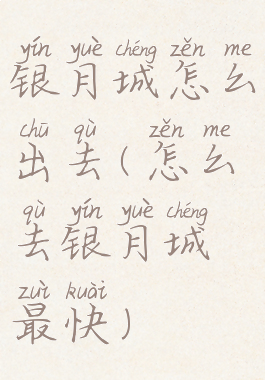 yín yuè chéng zěn me
银月城怎么
chū qù zěn me
出去(怎么
qù yín yuè chéng
去银月城
zuì kuài
最快)